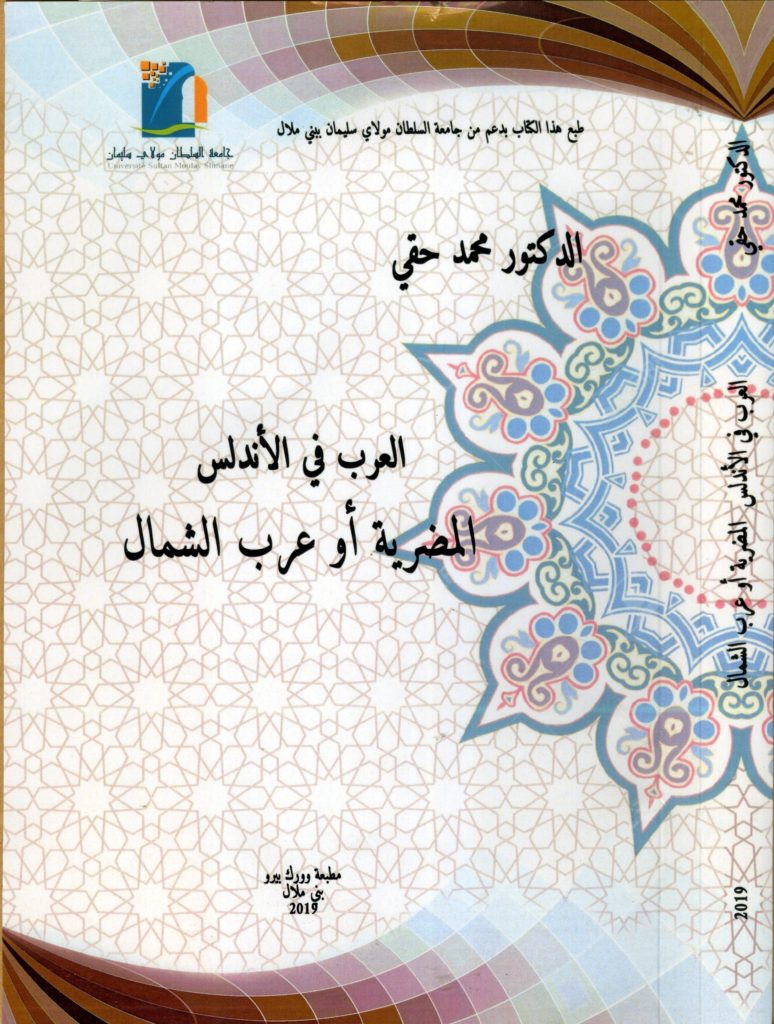 طبع هذا الكتاب بدعم من جامعة السلطان مولاي سليمان ببني ملال
جامعة السلطان مولاي سليمان
Université Sultan Moulay Slimane
الدكتور محمد حقي
العرب في الأندلس
المضرية أو عرب الشمال
مطبعة وورك بيرو
بني ملال
2019
الدكتور محمد حقي
العرب في الأندلس المضرية أو عرب الشمال
2019